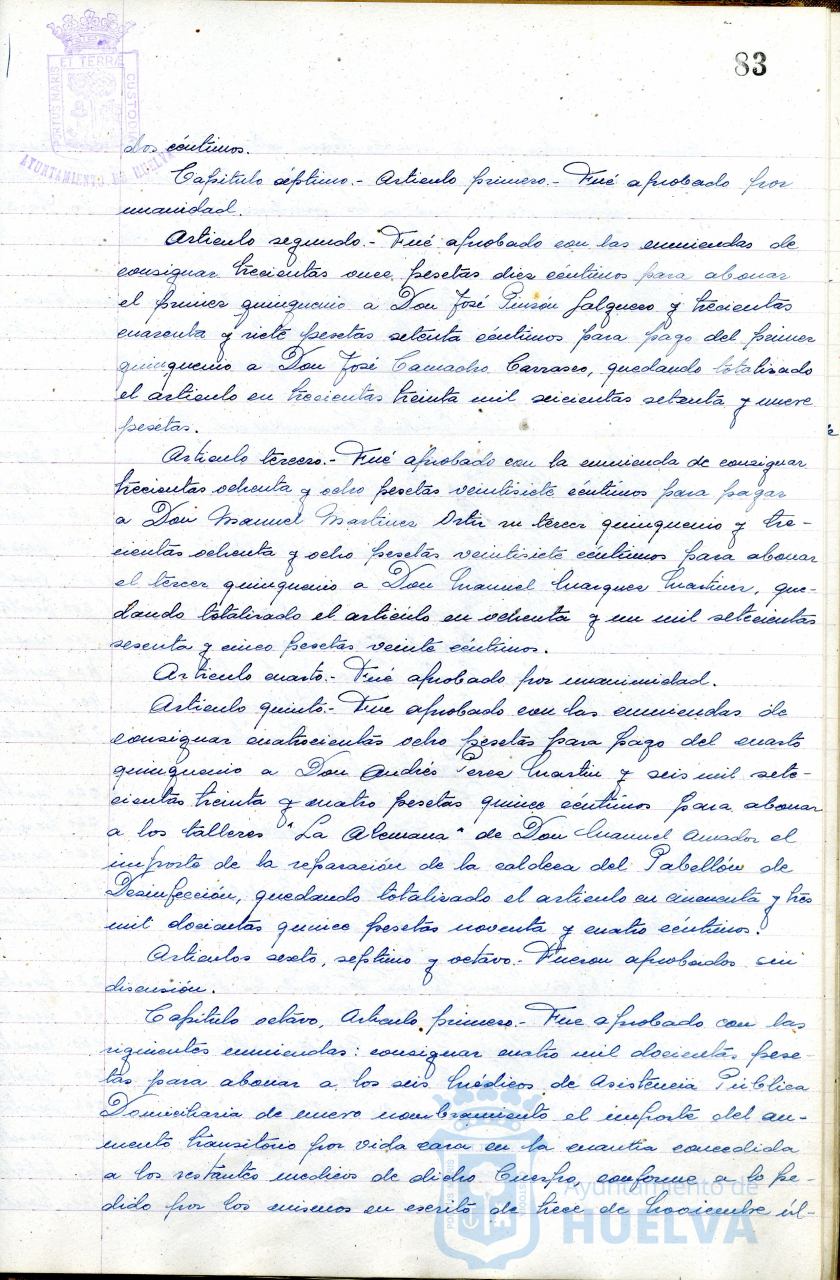 83
ET TERRÆ
PORTUS MARIS
CUSTODIA
AYUNTAMIENTO DE HUELVA
dos céntimos.
Capítulo séptimo.- Artículo primero.- Fué aprobado por
unanidad.
Artículo segundo.- Fué aprobado con las enmiendas de
consignar trecientas once pesetas diez céntimos para abonar
el primer quinquenio a Don José Pinzón Salguero y trecientas
cuarenta y siete pesetas setenta céntimos para pago del primer
quinquenio a Don José Camacho Carrasco, quedando totalizado
el artículo en trecientas treinta mil seicientas setenta y nueve
pesetas.
Artículo tercero.- Fué aprobado con la enmienda de consignar
trecientas ochenta y ocho pesetas veintisiete céntimos para pagar
a Don Manuel Martínez Ortiz su tercer quinquenio y tre-
cientas ochenta y ocho pesetas veintisiete céntimos para abonar
el tercer quinquenio a Don Manuel Marquez Martinez, que-
dando totalizado el artículo en ochenta y un mil setecientas
sesenta y cinco pesetas veinte céntimos.
Artículo cuarto.- Fué aprobado por unanimidad.
Artículo quinto.- Fue aprobado con las enmiendas de
consignar cuatrocientas ocho pesetas para pago del cuarto
quinquenio a Don Andrés Perez Martin y seis mil sete-
cientas treinta y cuatro pesetas quince céntimos para abonar
a los talleres "La Alemana" de Don Manuel Amador el
importe de la reparación de la caldera del Pabellón de
Desinfección, quedando totalizado el artículo en cincuenta y tres
mil docientas quince pesetas noventa y cuatro céntimos.
Artículos sexto, septimo y octavo.- Fueron aprobados sin
discusión.
Capítulo octavo, Artículo primero.- Fue aprobado con las
siguientes enmiendas: consignar cuatro mil docientas pese-
tas para abonar a los seis Médicos de Asistencia Pública
Domiciliaria de nuevo nombramiento el importe del au-
mento transitorio por vida cara en la cuantía concedida
a los restantes medicos de dicho Cuerpo, conforme a lo pe-
dido por los mismos en escrito de trece de Noviembre úl-
Ayuntamiento de
HUELVA